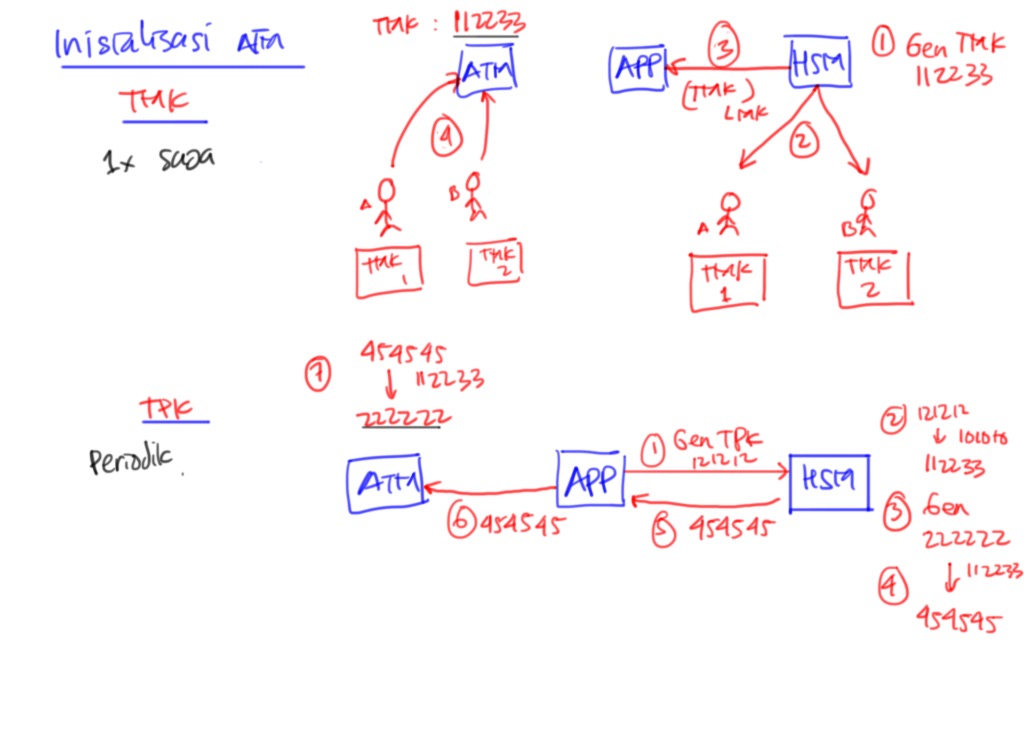 Inisialisasi ATM
TMK
1x saja
TMK : 112233
ATM
4
A
B
TMK
1
TMK
2
APP
3
(TMK)
LMK
HSM
1 Gen TMK
112233
2
A
B
TMK
1
TMK
2
TPK
Periodik
7
454545
↓ 112233
222222
ATM
6 454545
APP
1 Gen TPK
121212
5 454545
HSM
2 121212
↓ 101010
112233
3 Gen
222222
4 ↓ 112233
454545